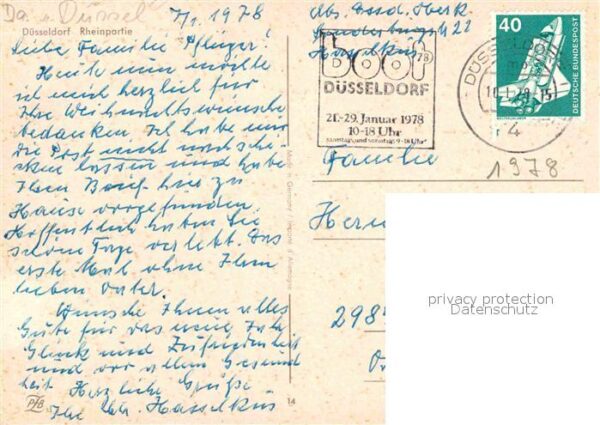 Da. u. Düssel
7/1. 1978
Düsseldorf Rheinpartie
Liebe Familie Pflüger!
Heute nun möchte
ich mich herzlich für
Ihre Weihnachtswünsche
bedanken. Ich habe mir
die Post nicht nachschi-
cken lassen und habe
Ihren Brief hier zu
Hause vorgefunden.
Hoffentlich haben Sie
schöne Tage verlebt. Das
erste Mal ohne Ihren
lieben Vater.
Wünsche Ihnen alles
Gute für das neue Jahr
Glück und Zufriedenheit
und vor allem Gesund
heit Herzliche Grüße
Ihre Hasselkus
14
Abs.
22
Hasselkus
boot 78
DÜSSELDORF
21.-29. Januar 1978
10-18 Uhr
Samstag und Sonntag 9-18 Uhr
40
DEUTSCHE BUNDESPOST
DÜSSELDORF
4
1978
Familie
Herm
privacy protection
Datenschutz
298